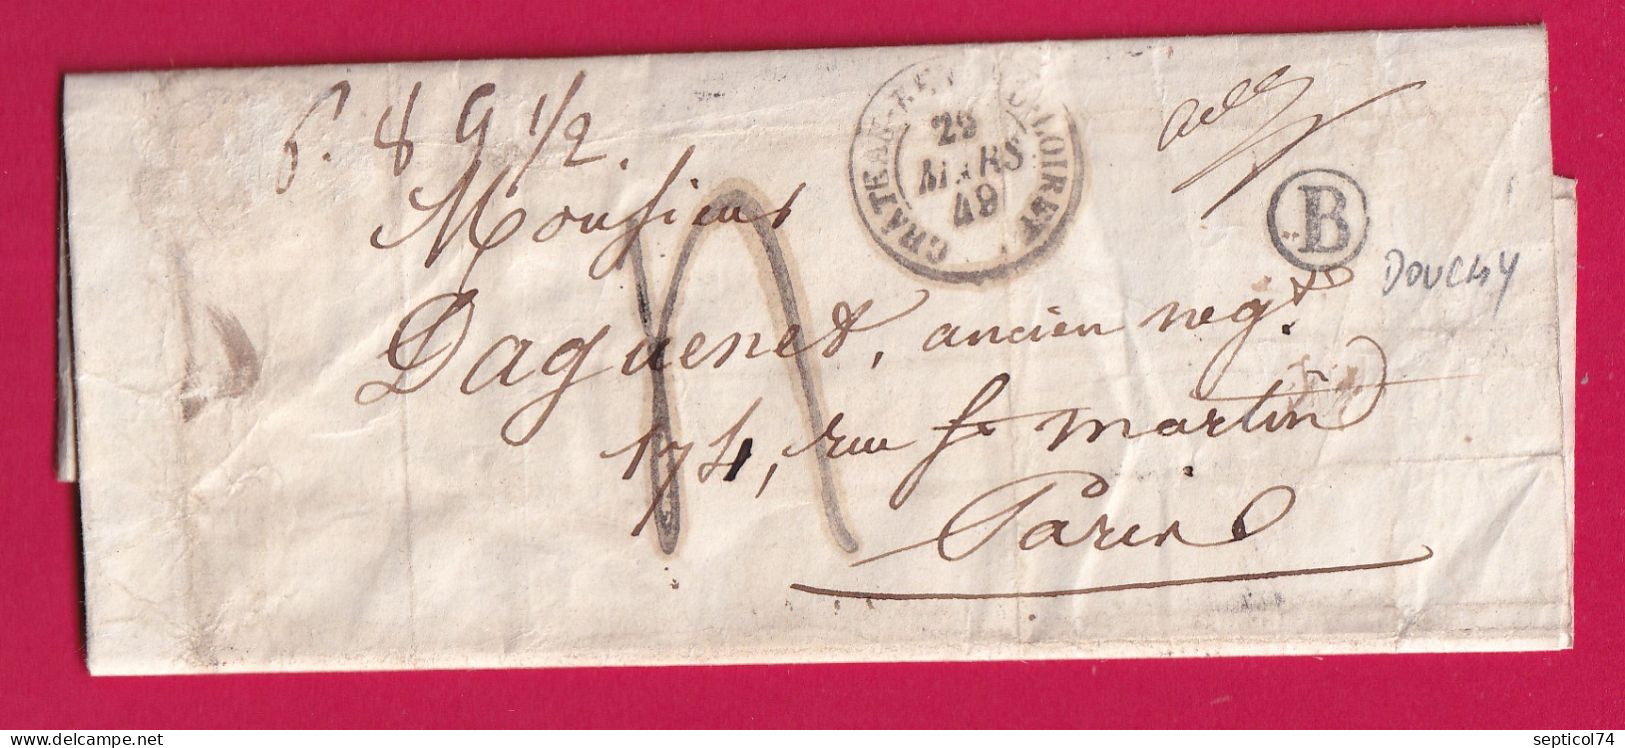 P. 8 9 1/2.
CHATEAU-RE LOIRET
29
MARS
49
B
DOUCHY
Monsieur
Daguenet, ancien negt.
174, rue St martin
Paris
delcampe.net
septicol74